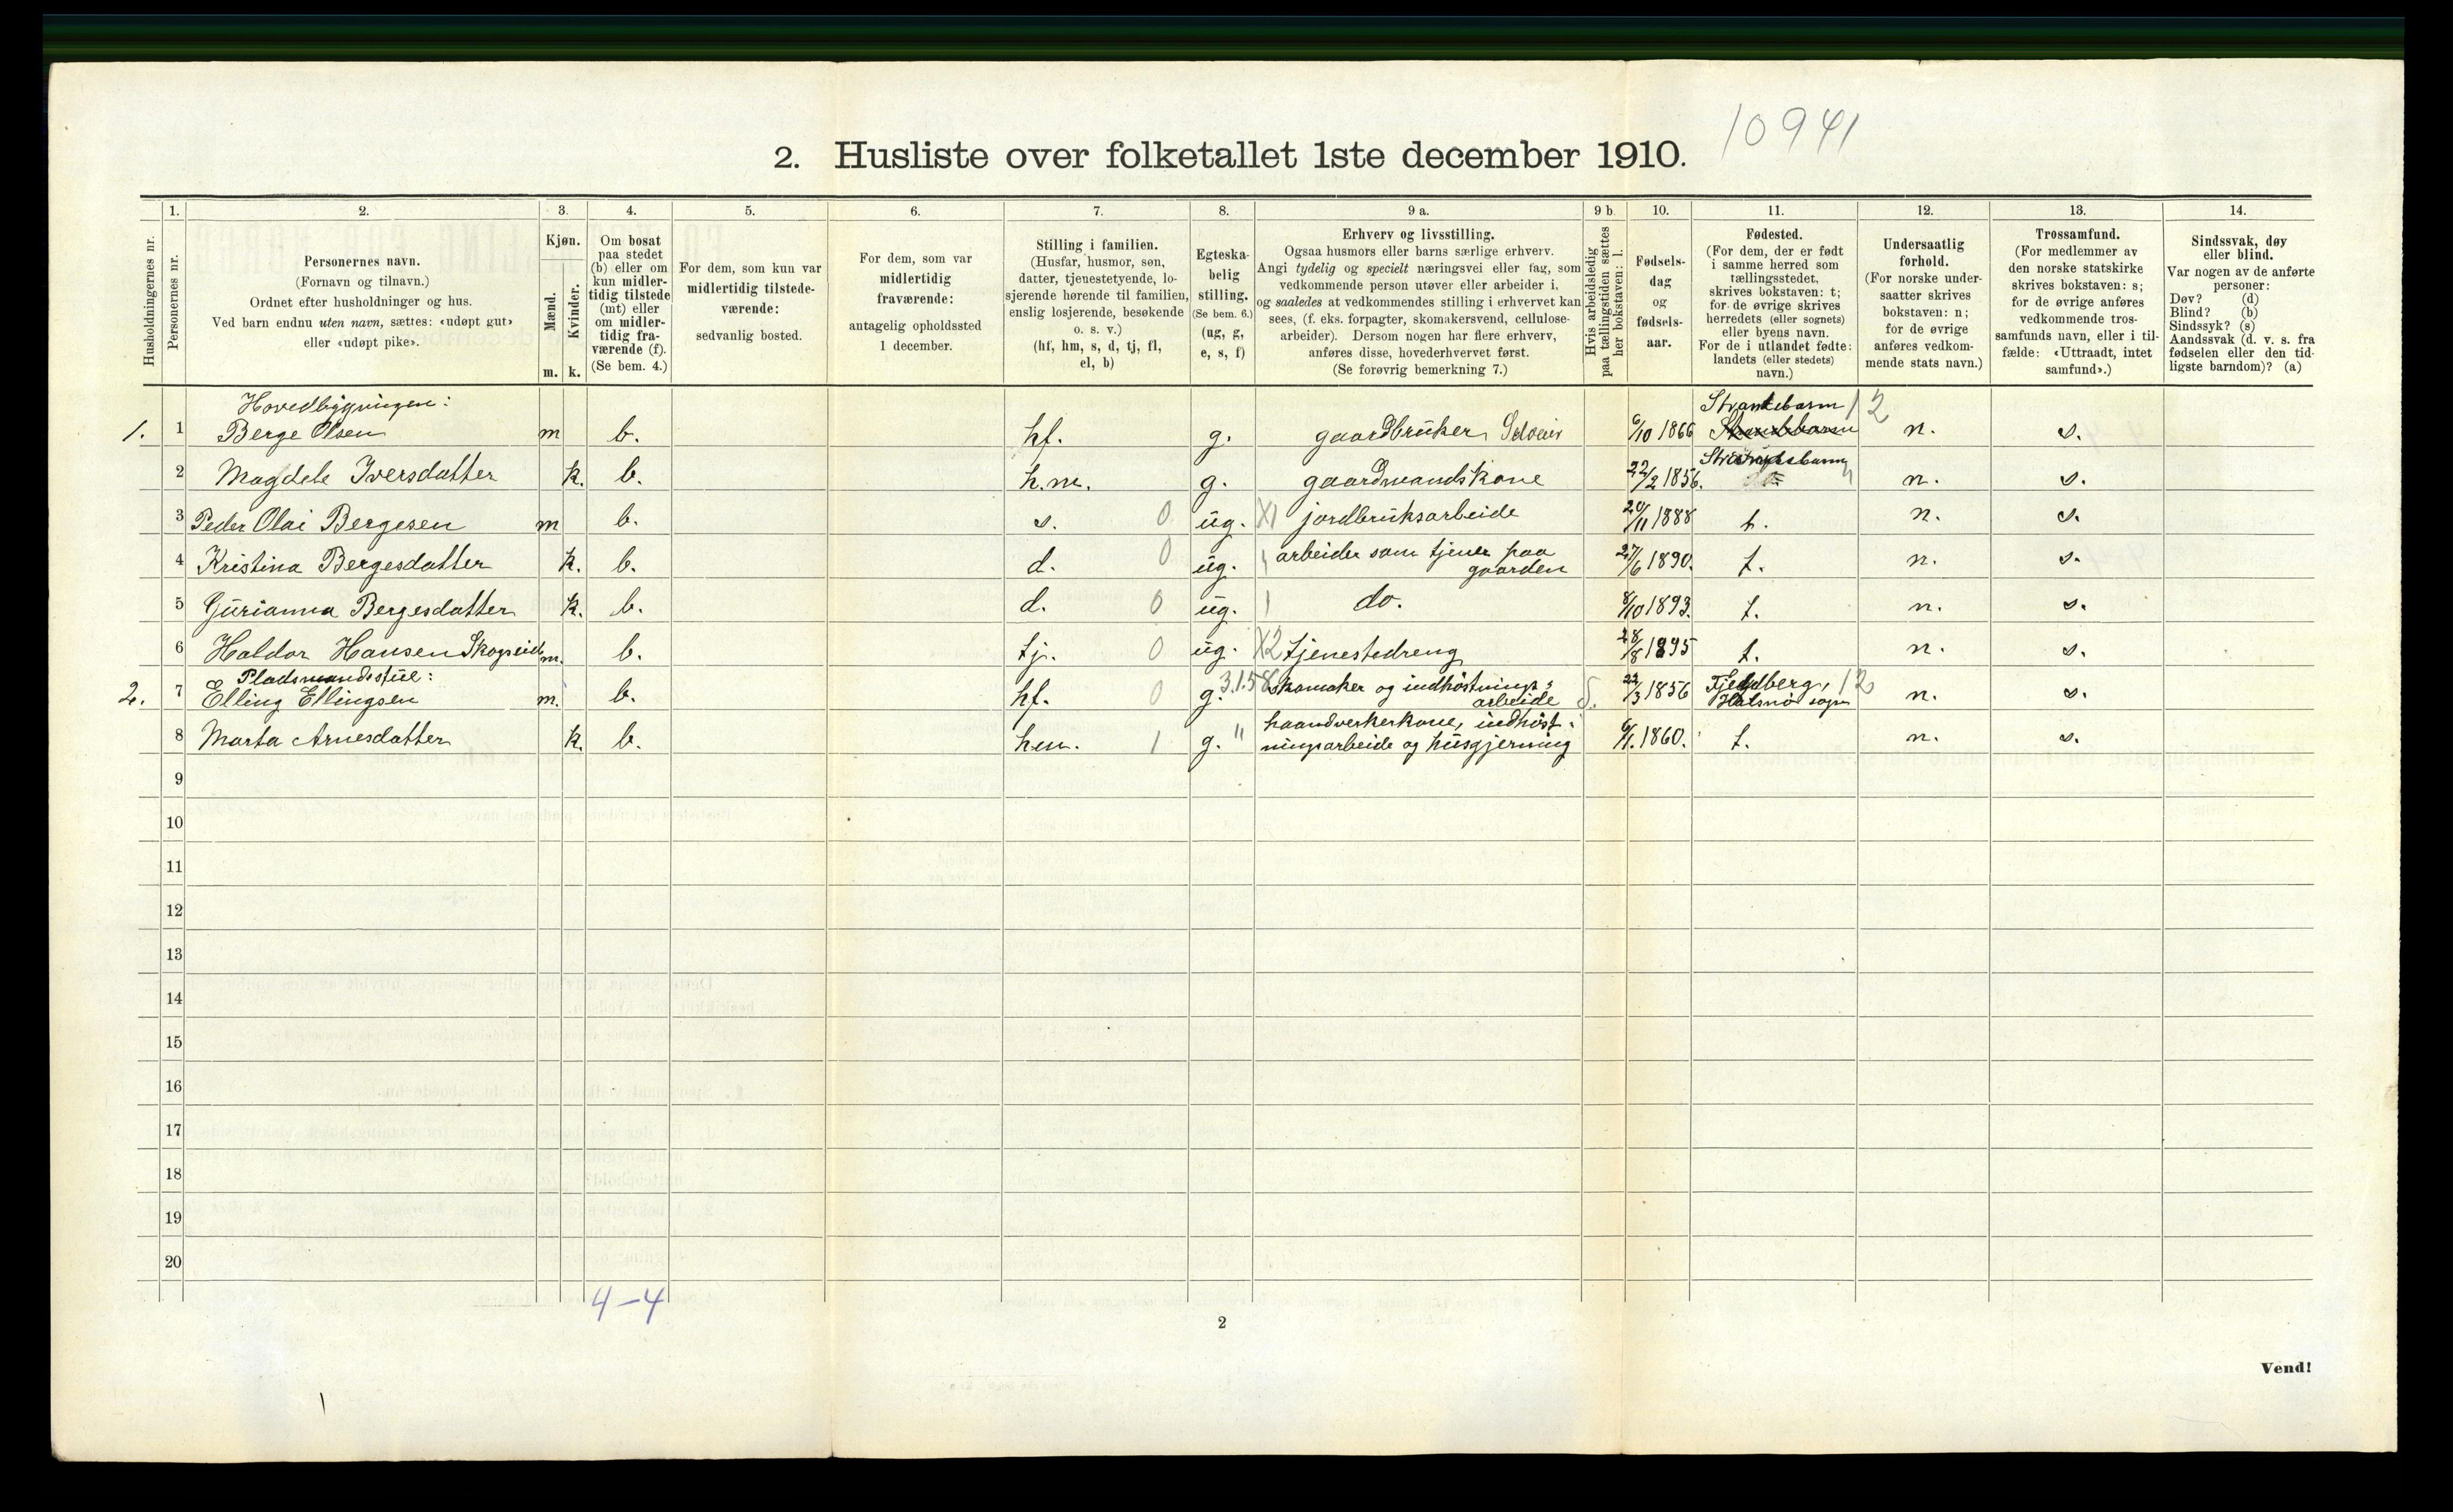 10941
2. Husliste over folketallet 1ste december 1910.
Husholdningernes nr.
1.
Personernes nr.
2.
Personernes navn.
(Fornavn og tilnavn.)
Ordnet efter husholdninger og hus.
Ved barn endnu uten navn, sættes: «udøpt gut»
eller «udøpt pike».
3.
Kjøn.
Mænd.
Kvinder.
m. k.
4.
Om bosat
paa stedet
(b) eller om
kun midler-
tidig tilstede
(mt) eller
om midler-
tidig fra-
værende (f).
(Se bem. 4.)
5.
For dem, som kun var
midlertidig tilstede-
værende:
sedvanlig bosted.
6.
For dem, som var
midlertidig
fraværende:
antagelig opholdssted
1 december.
7.
Stilling i familien.
(Husfar, husmor, søn,
datter, tjenestetyende, lo-
sjerende hørende til familien,
enslig losjerende, besøkende
o. s. v.)
(hf, hm, s, d, tj, fl,
el, b)
8.
Egteska-
belig
stilling.
(Se bem. 6.)
(ug, g,
e, s, f)
9 a.
Erhverv og livsstilling.
Ogsaa husmors eller barns særlige erhverv.
Angi tydelig og specielt næringsvei eller fag, som
vedkommende person utøver eller arbeider i,
og saaledes at vedkommendes stilling i erhvervet kan
sees, (f. eks. forpagter, skomakersvend, cellulose-
arbeider). Dersom nogen har flere erhverv,
anføres disse, hovederhvervet først.
(Se forøvrig bemerkning 7.)
9 b.
Hvis arbeidsledig
paa tællingstiden sættes
her bokstaven: l.
10.
Fødsels-
dag
og
fødsels-
aar.
11.
Fødested.
(For dem, der er født
i samme herred som
tællingsstedet,
skrives bokstaven: t;
for de øvrige skrives
herredets (eller sognets)
eller byens navn.
For de i utlandet fødte:
landets (eller stedets)
navn.)
12.
Undersaatlig
forhold.
(For norske under-
saatter skrives
bokstaven: n;
for de øvrige
anføres vedkom-
mende stats navn.)
13.
Trossamfund.
(For medlemmer av
den norske statskirke
skrives bokstaven: s;
for de øvrige anføres
vedkommende tros-
samfunds navn, eller i til-
fælde: «Uttraadt, intet
samfund».)
14.
Sindssvak, døv
eller blind.
Var nogen av de anførte
personer:
Døv? (d)
Blind? (b)
Sindssyk? (s)
Aandssvak (d. v. s. fra
fødselen eller den tid-
ligste barndom)? (a)
Hovedbygningen: Strandebarm 12
1. 1 Berge Olsen m b. hf. g. gaardbruker Selveier 6/10 1866 n. s.
2 Magdele Iversdatter k. b. h.m. g. gaardmandskone 22/2 1856. n. s.
3 Peder Olai Bergesen m b. s. 0 ug. X1 jordbruksarbeide 20/11 1888 t. n. s.
4 Kristina Bergesdatter k. b. d. 0 ug. arbeider som tjener paa gaarden 27/6 1890. t. n. s.
5 Gurianna Bergesdatter k. b. d. 0 ug. 1 do. 8/10 1893. t. n. s.
6 Haldor Hansen Skogseid m. b. tj. 0 ug. X2 tjenestedreng 28/8 1895 t. n. s.
Pladsmandsstue:
2. 7 Elling Ellingsen m. b. hf. 0 g. 3.1.58 skomaker og indhøstnings- arbeide 22/3 1856 Fjeldberg, Halsnø sogn 12 n. s.
8 Marta Arnesdatter k. b. hm. 1 g. " haandverkerkone, indhøst- ningsarbeide og husgjerning 6/1. 1860. t. n. s.
9
10
11
12
13
14
15
16
17
18
19
20
4-4
2
Vend!